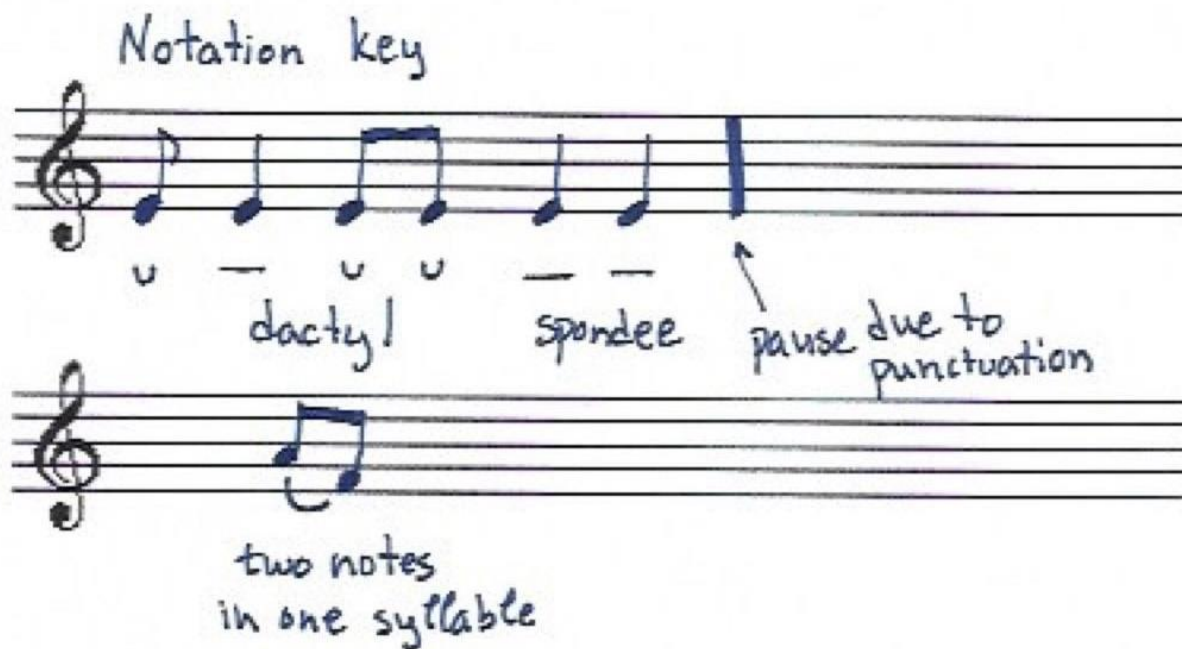 Notation key
∪ — ∪ ∪ — —
dactyl spondee pause due to
punctuation
two notes
in one syllable